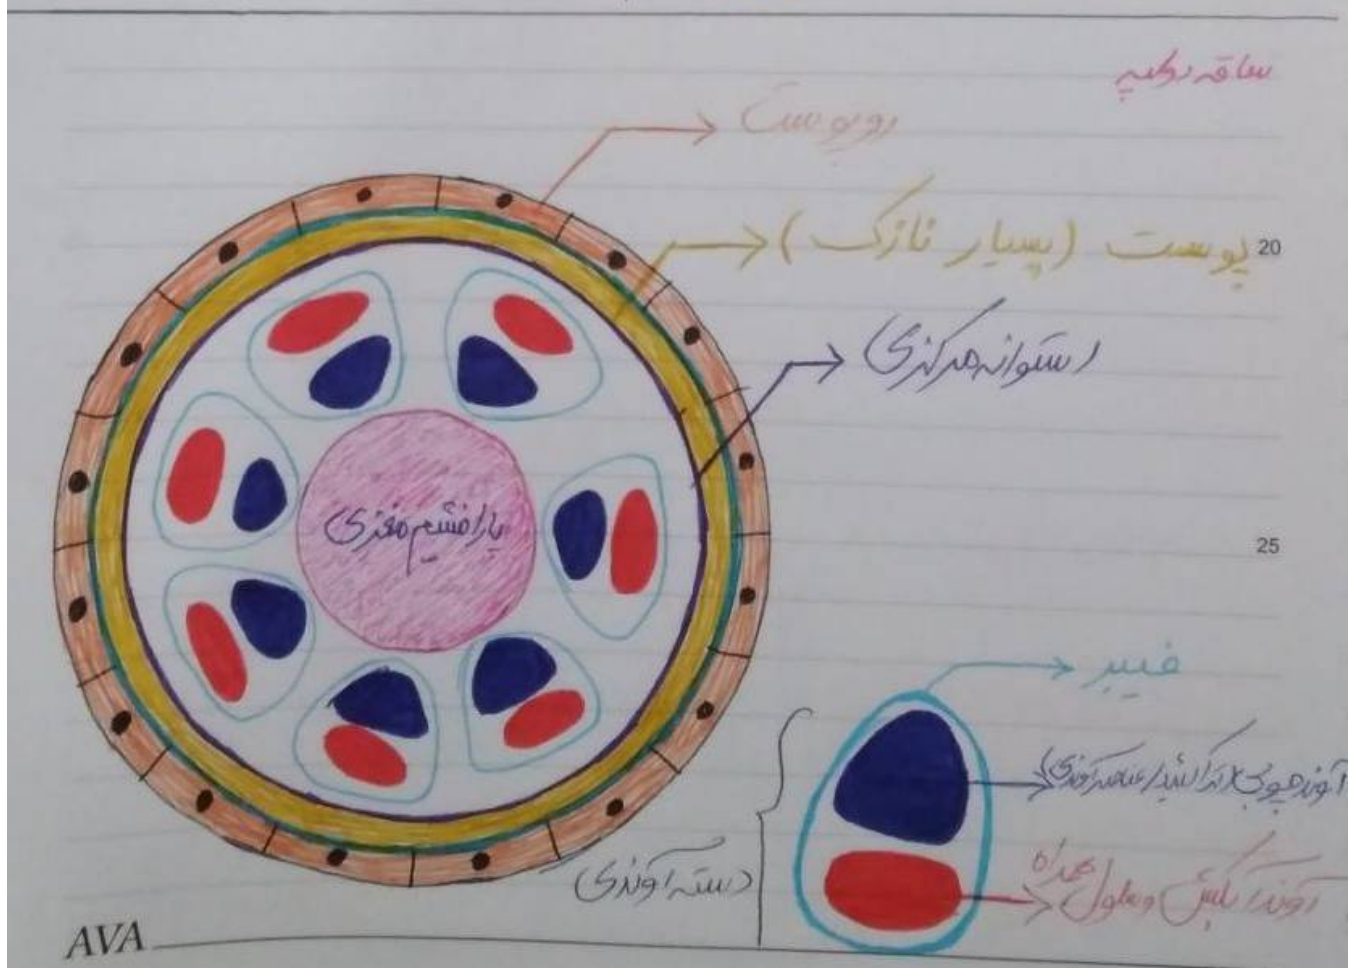 ساقه دولپه
روپوست
پوست (بسیار نازک)
20
استوانه مرکزی
پارانشیم مغزی
25
فیبر
آوند چوبی (تراکئید/عناصر آوندی)
آوند آبکش و سلول همراه
دسته آوندی
AVA